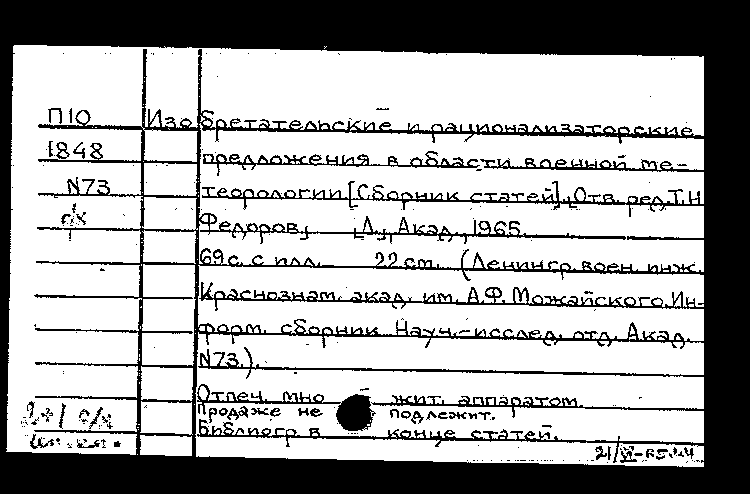 П10 Изобретательские и рационализаторские
1848 предложения в области военной ме-
N73 теорологии [Сборник статей], Отв. ред. Т.Н
о/х Федоров, [Л.], Акад., 1965.
69 с. с илл. 22 см. (Ленингр. воен. инж.
Краснознам. акад. им. А.Ф. Можайского. Ин-
форм. сборник Науч.-исслед. отд. Акад.
N73.).
Отпеч. мно жит. аппаратом.
Продаже не подлежит.
Библиогр. в конце статей.